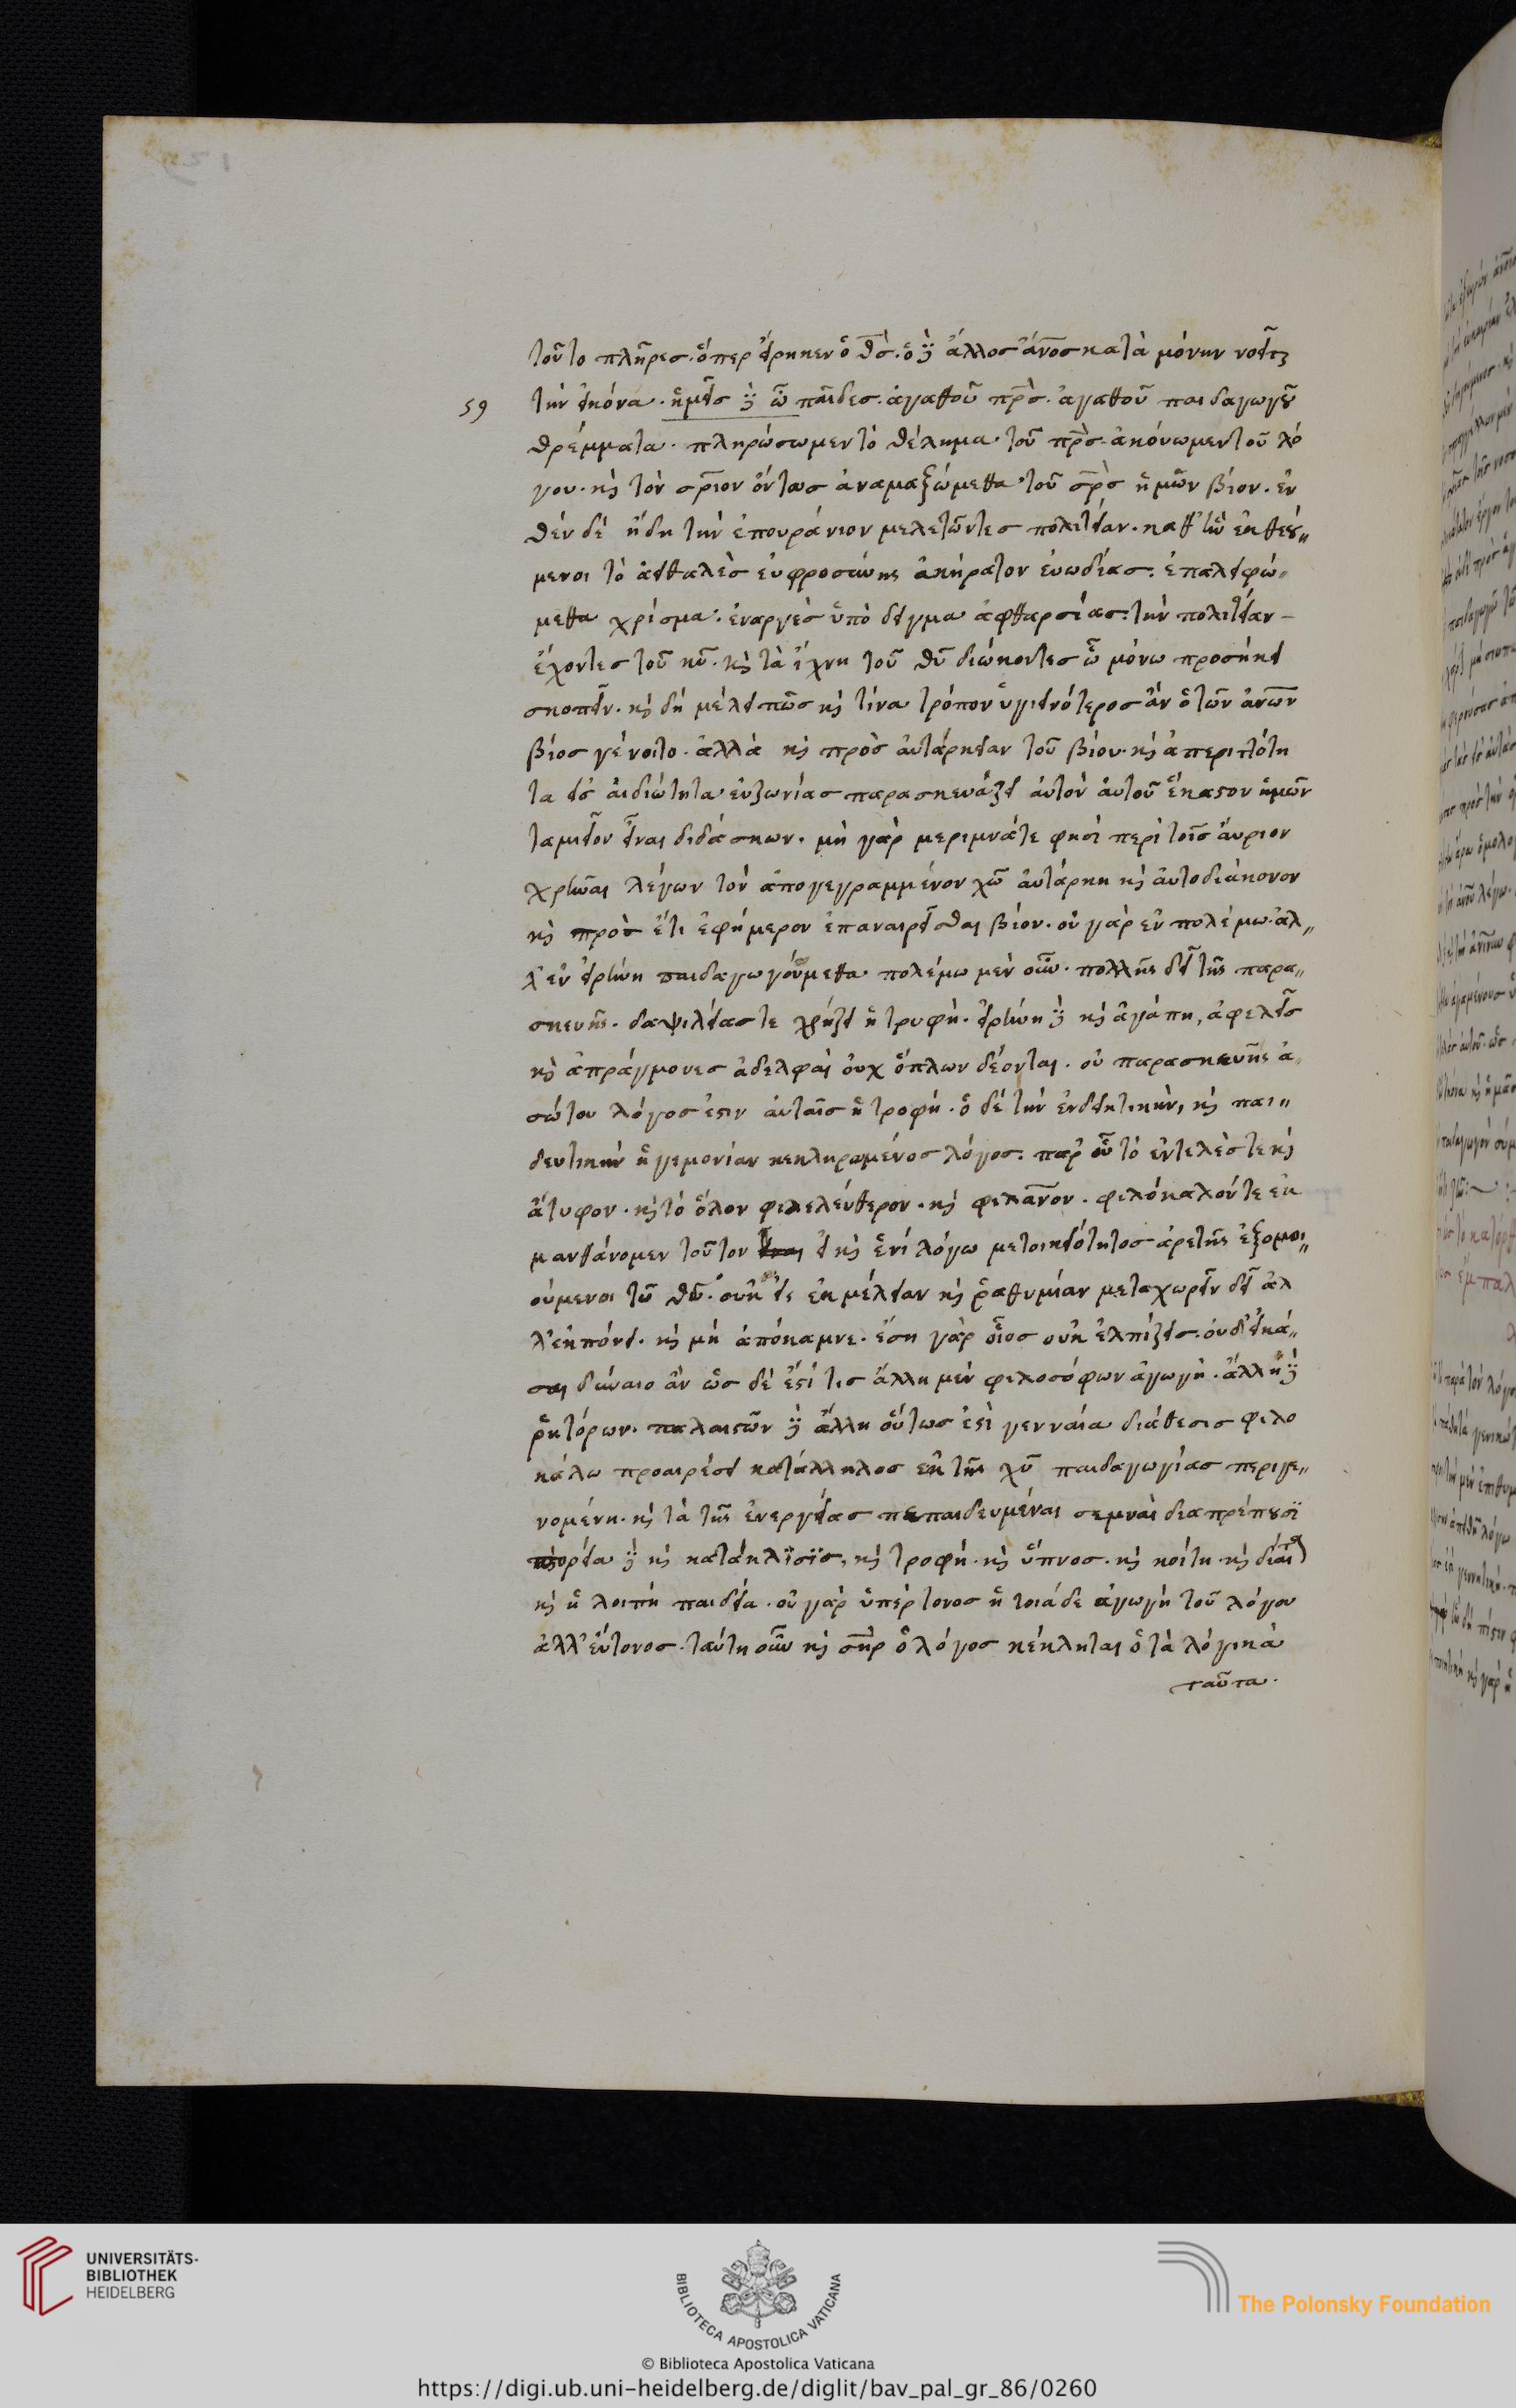 τοῦτο πλῆρες. ὅπερ εἴρηκεν ὁ θς̅. ὁ δὲ ἄλλος ἄν̅ος κατὰ μόνην νοεῖται
59 τὴν εἰκόνα. ἡμεῖς δὲ ὦ παῖδες. ἀγαθοῦ πρ̅ς. ἀγαθοῦ παιδαγωγοῦ
θρέμματα. πληρώσωμεν τὸ θέλημα τοῦ πρ̅ς. ἀκούωμεν τοῦ λό
γου. καὶ τὸν σρ̅ιον ὄντως ἀναμαξώμεθα τοῦ σρ̅ς ἡμῶν βίον. ἐν
θὲν δὲ ἤδη τὴν ἐπουράνιον μελετῶντες πολιτείαν. καθ' ἣν ἐκθεού„
μενοι τὸ ἀειθαλὲς εὐφροσύνης ἀκήρατον εὐωδίας. ἐπαλειφώ„
μεθα χρίσμα. ἐναργὲς ὑπόδειγμα ἀφθαρσίας. τὴν πολιτείαν –
ἔχοντες τοῦ κυ̅. καὶ τὰ ἴχνη τοῦ θυ̅ διώκοντες ᾧ μόνω προσήκει
σκοπεῖν. καὶ δὴ μέλει πῶς καὶ τίνα τρόπον ὑγιεινότερος ἂν ὁ τῶν ἀν̅ων
βίος γένοιτο. ἀλλὰ καὶ πρὸς αὐτάρκειαν τοῦ βίου. καὶ ἀπεριττότη
τα εἰς ἀιδιώτητα εὐζωνίας παρασκευάζει αὐτὸν αὑτοῦ ἕκαστον ἡμῶν
ταμιεῖον εἶναι διδάσκων. μὴ γὰρ μεριμνᾶτε φησὶ περὶ τοῖς αὔριον
χρῆναι λέγων τὸν ἀπογεγραμμένον χω̅ αὐτάρκη καὶ αὐτοδιάκονον
καὶ προς ἔτι ἐφήμερον ἐπαναιρεῖσθαι βίον. οὐ γὰρ ἐν πολέμω. ἀλ„
λ' ἐν εἰρήνη παιδαγωγούμεθα πολέμω μὲν οὖν. πολλῆς δεῖ τῆς παρα„
σκευῆς. δαψιλείας τε χρήζει ἡ τρυφή. εἰρήνη δὲ καὶ ἀγάπη, ἀφελεῖς
καὶ ἀπράγμονες ἀδελφαὶ οὐχ ὅπλων δέονται. οὐ παρασκευῆς ἀ„
σώτου λόγος ἐστὶν αὐταῖς ἡ τροφή. ὁ δὲ τὴν ἐνδεικτικὴν, καὶ παι„
δευτικὴν ἡγεμονίαν κεκληρωμένος λόγος. παρ' οὗ τὸ εὐτελές τε καὶ
ἄτυφον. καὶ τὸ ὅλον φιλελεύθερον. καὶ φιλάν̅ον. φιλόκαλόν τε ἐκ
μανθάνομεν τοῦτον ει καὶ ἑνὶ λόγω μετοικειότητος ἀρετῆς ἐξομοι„
ούμενοι τῶ θω̅. οὐκ εἰς ἐκμέλειαν καὶ ῥαθυμίαν μεταχωρεῖν δεῖ ἀλ
λ' ἐκπόνει. καὶ μὴ ἀπόκαμνε. ἔσῃ γὰρ οἷος οὐκ ἐλπίζεις. οὐδ' εἰκά„
σαι δύναιο ἄν ὡς δὲ ἔστί τις ἄλλη μὲν φιλοσόφων ἀγωγή. ἄλλη δὲ
ῥητόρων. παλαιστῶν δὲ ἄλλη οὕτως ἐστὶ γενναία διάθεσις φιλο
κάλω προαιρέσει κατάλληλος ἐκ τῆς χυ̅ παιδαγωγίας περιγε„
νομένη. καὶ τὰ τῆς ἐνεργείας πεπαιδευμέναι σεμναὶ διαπρέπουσι
πορεία δὲ καὶ κατάκλϊσϊς, καὶ τροφή. καὶ ὕπνος. καὶ κοίτη. καὶ δίαιτα
καὶ ἡ λοιπὴ παιδεία. οὐ γὰρ ὑπέρτονος ἡ τοιάδε ἀγωγὴ τοῦ λόγου
ἀλλ' εὔτονος. ταύτη οὖν καὶ σηρ̅ ὁ λόγος κέκληται ὁ τὰ λόγικὰ
ταῦτα.
UNIVERSITÄTS-
BIBLIOTHEK
HEIDELBERG
BIBLIOTECA APOSTOLICA VATICANA
The Polonsky Foundation
© Biblioteca Apostolica Vaticana
https://digi.ub.uni-heidelberg.de/diglit/bav_pal_gr_86/0260